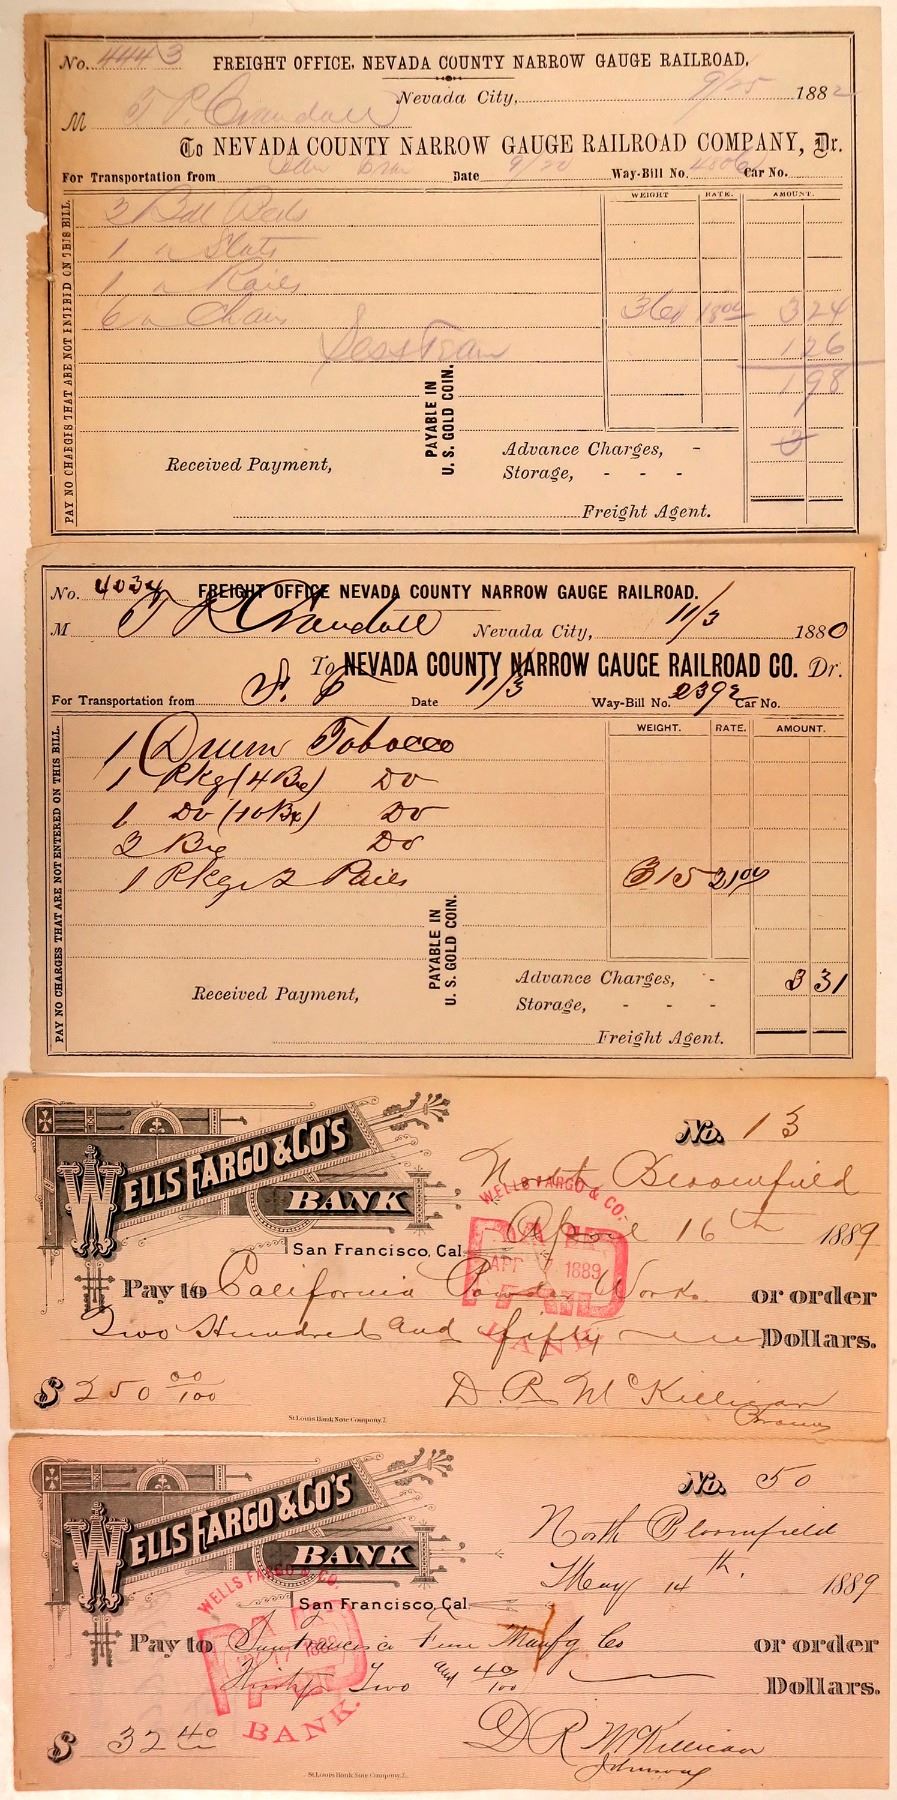 No. 4443 FREIGHT OFFICE, NEVADA COUNTY NARROW GAUGE RAILROAD.
Nevada City, 9/25 1882
M T P. Crandall
To NEVADA COUNTY NARROW GAUGE RAILROAD COMPANY, Dr.
For Transportation from Date 9/20 Way-Bill No. 4806 Car No.
PAY NO CHARGES THAT ARE NOT ENTERED ON THIS BILL.
WEIGHT RATE. AMOUNT.
3 Bdl Beds
1 " Slats
1 " Rails
6 " Chairs 360 1800 3 24
Less 1 26
1 98
PAYABLE IN U. S. GOLD COIN.
Received Payment,
Advance Charges, -
Storage, - - -
Freight Agent.
No. 4034 FREIGHT OFFICE NEVADA COUNTY NARROW GAUGE RAILROAD.
M T P Crandall Nevada City, 11/3 1880
To NEVADA COUNTY NARROW GAUGE RAILROAD CO. Dr.
For Transportation from S. F Date 11/3 Way-Bill No. 2392 Car No.
PAY NO CHARGES THAT ARE NOT ENTERED ON THIS BILL.
WEIGHT. RATE. AMOUNT.
1 Drum Tobacco
1 Pkg (4 Bx) Do
1 Do (10 Bx) Do
3 Bx Do
1 Pkge 2 Pails 315 2104
PAYABLE IN U. S. GOLD COIN.
Received Payment,
Advance Charges, - 3 31
Storage, - - -
Freight Agent.
WELLS FARGO & CO'S BANK
No. 13
North Bloomfield
April 16th 1889
San Francisco, Cal.
WELLS FARGO & CO. PAID APR 1889 BANK
Pay to California Powder Works or order
Two Hundred and fifty Dollars.
$ 250 00/100
D. R. McKillican
St. Louis Bank Note Company.
WELLS FARGO & CO'S BANK
No. 50
North Bloomfield
May 14th. 1889
San Francisco, Cal.
WELLS FARGO & CO. PAID 17 1889 BANK.
Pay to San Francisco Fuse Manfg Co or order
Thirty Two and 40/100 Dollars.
$ 32 40
D R McKillican
St. Louis Bank Note Company.